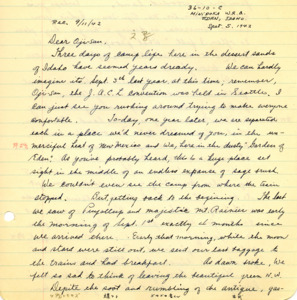 36-10-C
MINIDOKA W.R.A.
EDEN, IDAHO
Sept. 5, 1942
Rec. 9/11/42
28
Dear Oji-san,
Three days of camp life here in the desert sands
of Idaho have seemed years already. We can hardly
imagine its Sept. 3rd last year at this time, remember,
Oji-san, the J.A.C.L convention was held in Seattle. I
can just see you rushing around trying to make everyone
comfortable. To-day, one year later, we are separated
each in a place we'd never dreamed of, you, in the un-
merciful heat of New Mexico and we, here in the dusty "Garden of
Eden". As you've probably heard, this is a huge place set
right in the middle of an endless expanse of sage brush.
We couldn't even see the camp from where the train
stopped. But, getting back to the beginning. The last
we saw of Puyallup and majestic Mt. Rainier was early
the morning of Sept. 1st exactly months since
we arrived there. Early that morning, while the moon
and stars were still out, we sent our last baggage to
the trains and had breakfast. As dawn broke, we
felt so sad to think of leaving the beautiful green N.W.
Despite the soot and rumbling of the antique, gas-